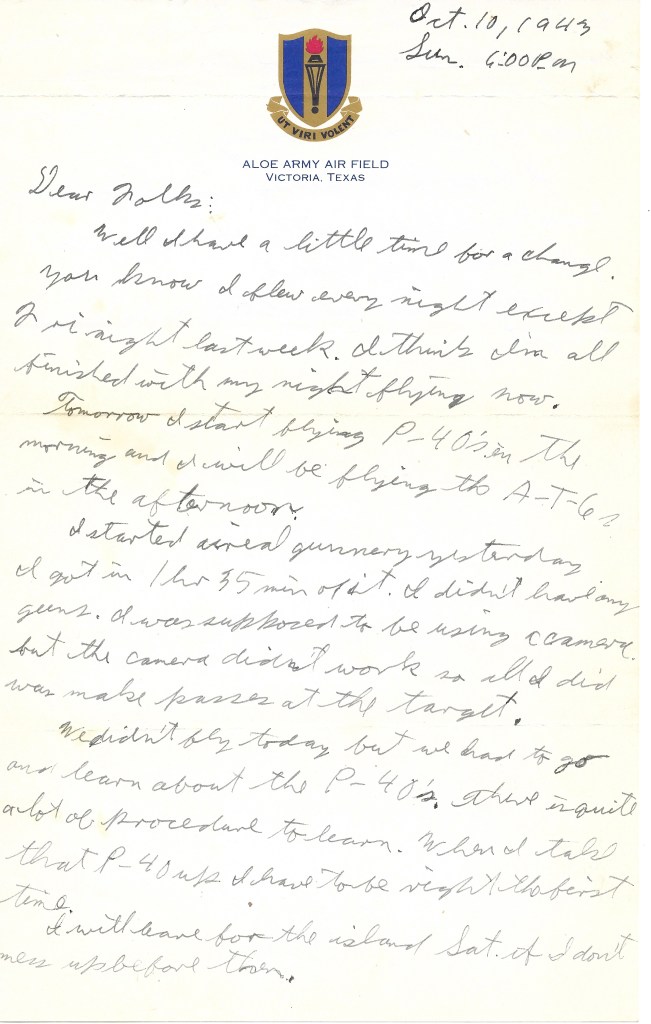 Oct. 10, 1943
Sun. 6:00 P.m
UT VIRI VOLENT
ALOE ARMY AIR FIELD
VICTORIA, TEXAS
Dear Folks:
Well I have a little time for a change.
You know I flew every night except
Fri night last week. I think I'm all
finished with my night flying now.
Tomorrow I start flying P-40's in the
morning and I will be flying the A-T-6s
in the afternoon.
I started aireal gunnery yesterday
I got in 1 hr 35 min of it. I didn't have any
guns. I was supposed to be using a camera.
but the camera didn't work so all I did
was make passes at the target.
We didn't fly today but we had to go
and learn about the P-40's. There is quite
a lot of procedure to learn. When I take
that P-40 up I have to be right the first
time.
I will leave for the island Sat. if I don't
mess up before then.